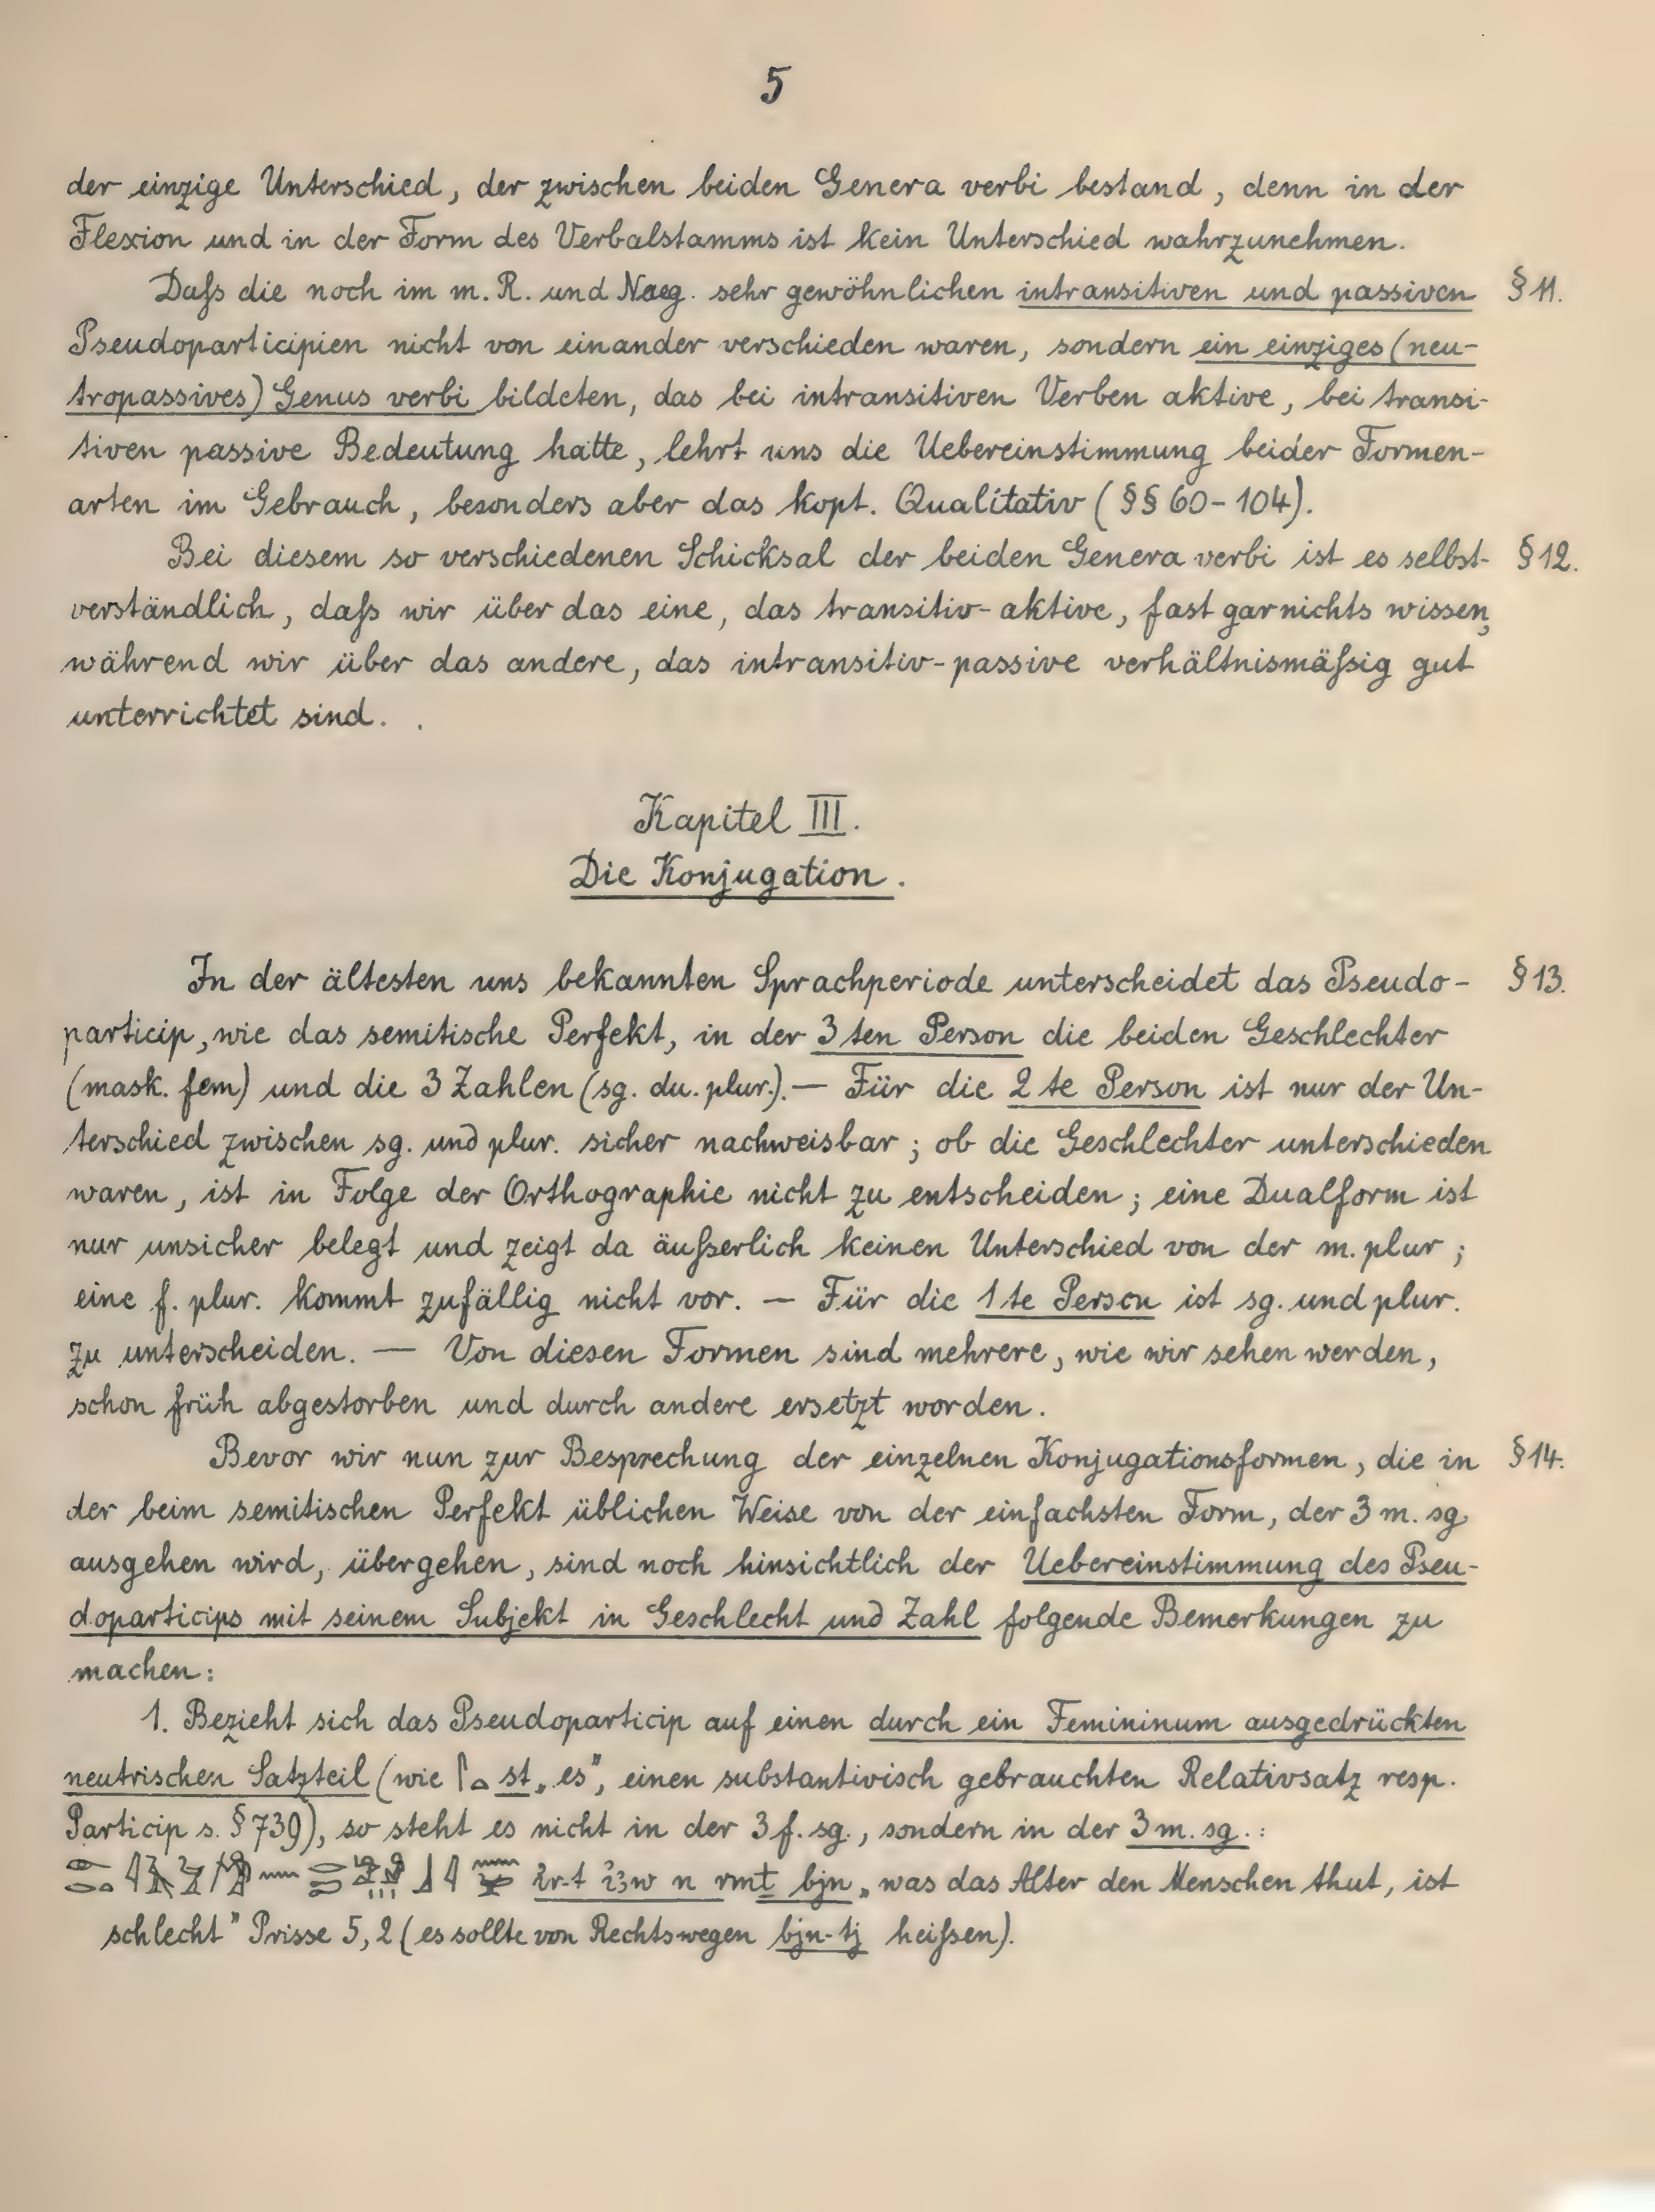 5
der einzige Unterschied, der zwischen beiden Genera verbi bestand, denn in der
Flexion und in der Form des Verbalstamms ist kein Unterschied wahrzunehmen.
Daſs die noch im m. R. und Naeg. sehr gewöhnlichen intransitiven und passiven § 11.
Pseudoparticipien nicht von einander verschieden waren, sondern ein einziges (neu-
tropassives) Genus verbi bildeten, das bei intransitiven Verben aktive, bei transi-
tiven passive Bedeutung hatte, lehrt uns die Uebereinstimmung beider Formen-
arten im Gebrauch, besonders aber das kopt. Qualitativ (§§ 60-104).
Bei diesem so verschiedenen Schicksal der beiden Genera verbi ist es selbst- § 12.
verständlich, daſs wir über das eine, das transitiv-aktive, fast garnichts wissen,
während wir über das andere, das intransitiv-passive verhältnismäſsig gut
unterrichtet sind.
Kapitel III.
Die Konjugation.
In der ältesten uns bekannten Sprachperiode unterscheidet das Pseudo- § 13.
particip, wie das semitische Perfekt, in der 3 ten Person die beiden Geschlechter
(mask. fem) und die 3 Zahlen (sg. du. plur.). — Für die 2 te Person ist nur der Un-
terschied zwischen sg. und plur. sicher nachweisbar; ob die Geschlechter unterschieden
waren, ist in Folge der Orthographie nicht zu entscheiden; eine Dualform ist
nur unsicher belegt und zeigt da äuſserlich keinen Unterschied von der m. plur;
eine f. plur. kommt zufällig nicht vor. — Für die 1 te Person ist sg. und plur.
zu unterscheiden. — Von diesen Formen sind mehrere, wie wir sehen werden,
schon früh abgestorben und durch andere ersetzt worden.
Bevor wir nun zur Besprechung der einzelnen Konjugationsformen, die in § 14.
der beim semitischen Perfekt üblichen Weise von der einfachsten Form, der 3 m. sg.
ausgehen wird, übergehen, sind noch hinsichtlich der Uebereinstimmung des Pseu-
doparticips mit seinem Subjekt in Geschlecht und Zahl folgende Bemerkungen zu
machen:
1. Bezieht sich das Pseudoparticip auf einen durch ein Femininum ausgedrückten
neutrischen Satzteil (wie 𓋴𓏏 st „es”, einen substantivisch gebrauchten Relativsatz resp.
Particip s. § 739), so steht es nicht in der 3 f. sg., sondern in der 3 m. sg.:
ir-t i3w n rmṯ bjn „was das Alter den Menschen thut, ist
schlecht” Prisse 5, 2 (es sollte von Rechtswegen bjn-tj heiſsen).